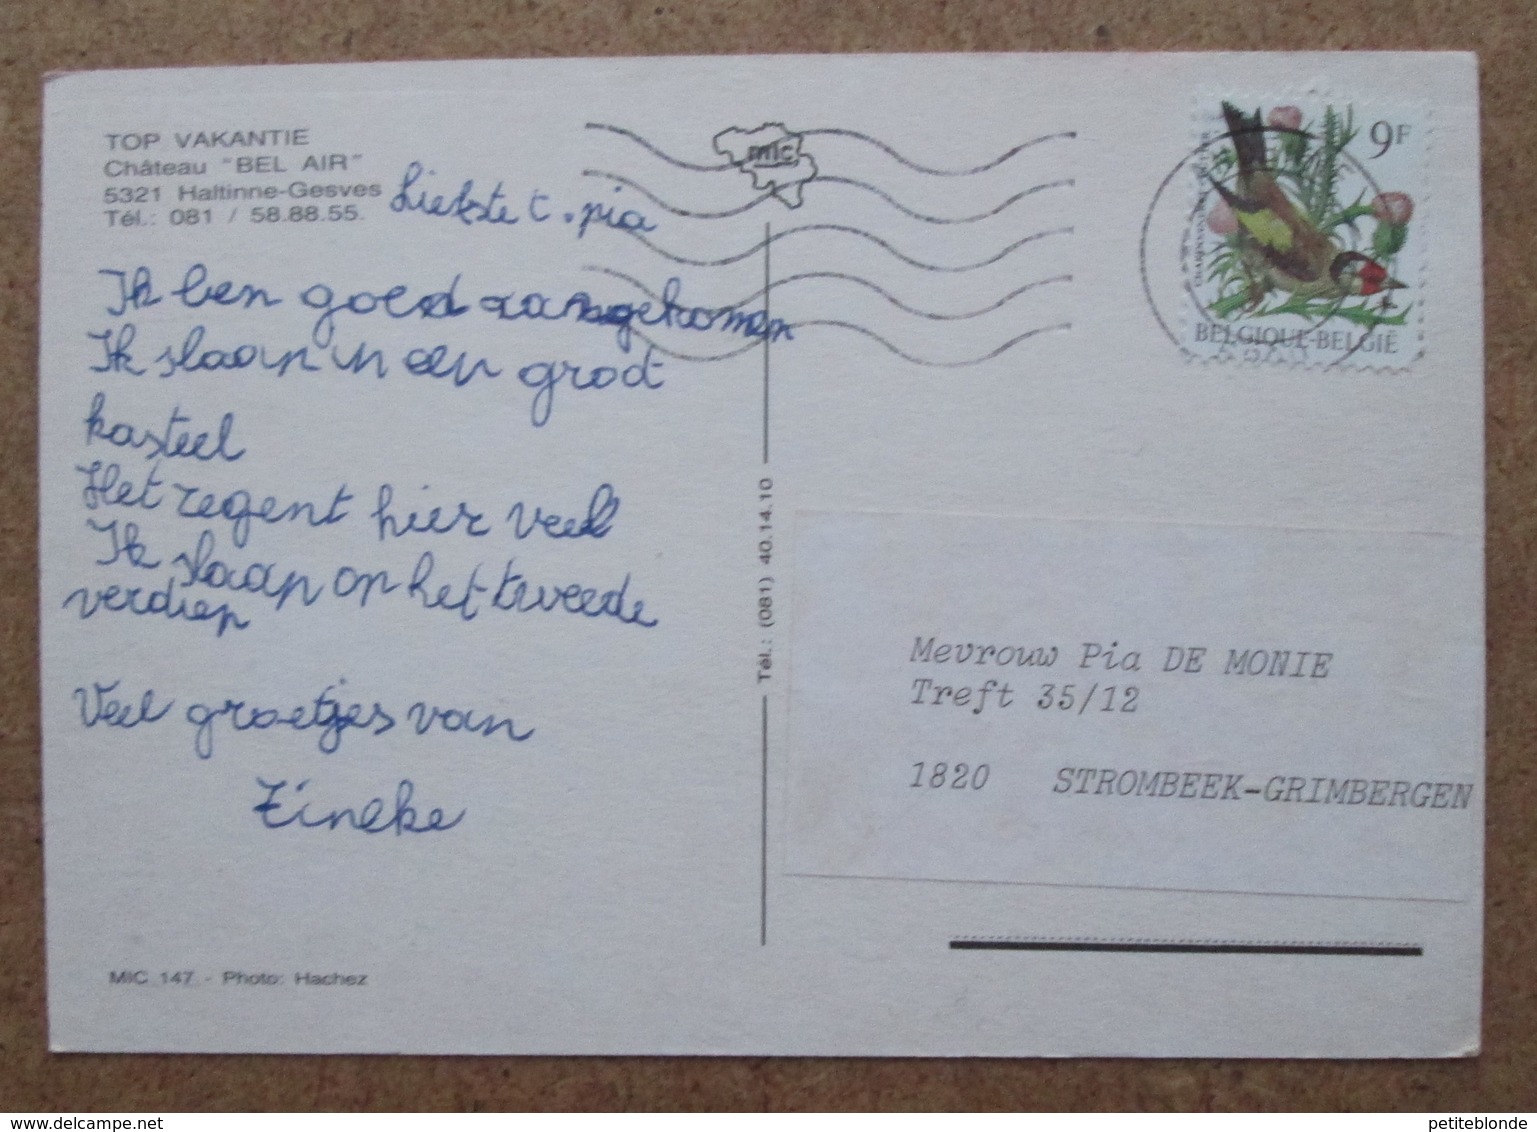 TOP VAKANTIE
Château "BEL AIR"
5321 Haltinne-Gesves
Tél.: 081 / 58.88.55.
mic
9F
BELGIQUE-BELGIË
Liefste t. pia
Ik ben goed aangekomen
Ik slaap in een groot
kasteel
Het regent hier veel
Ik slaap op het tweede
verdiep
Veel groetjes van
Tineke
Tél.: (081) 40.14.10
Mevrouw Pia DE MONIE
Treft 35/12
1820 STROMBEEK-GRIMBERGEN
MIC 147 - Photo: Hachez
www.delcampe.net
petiteblonde